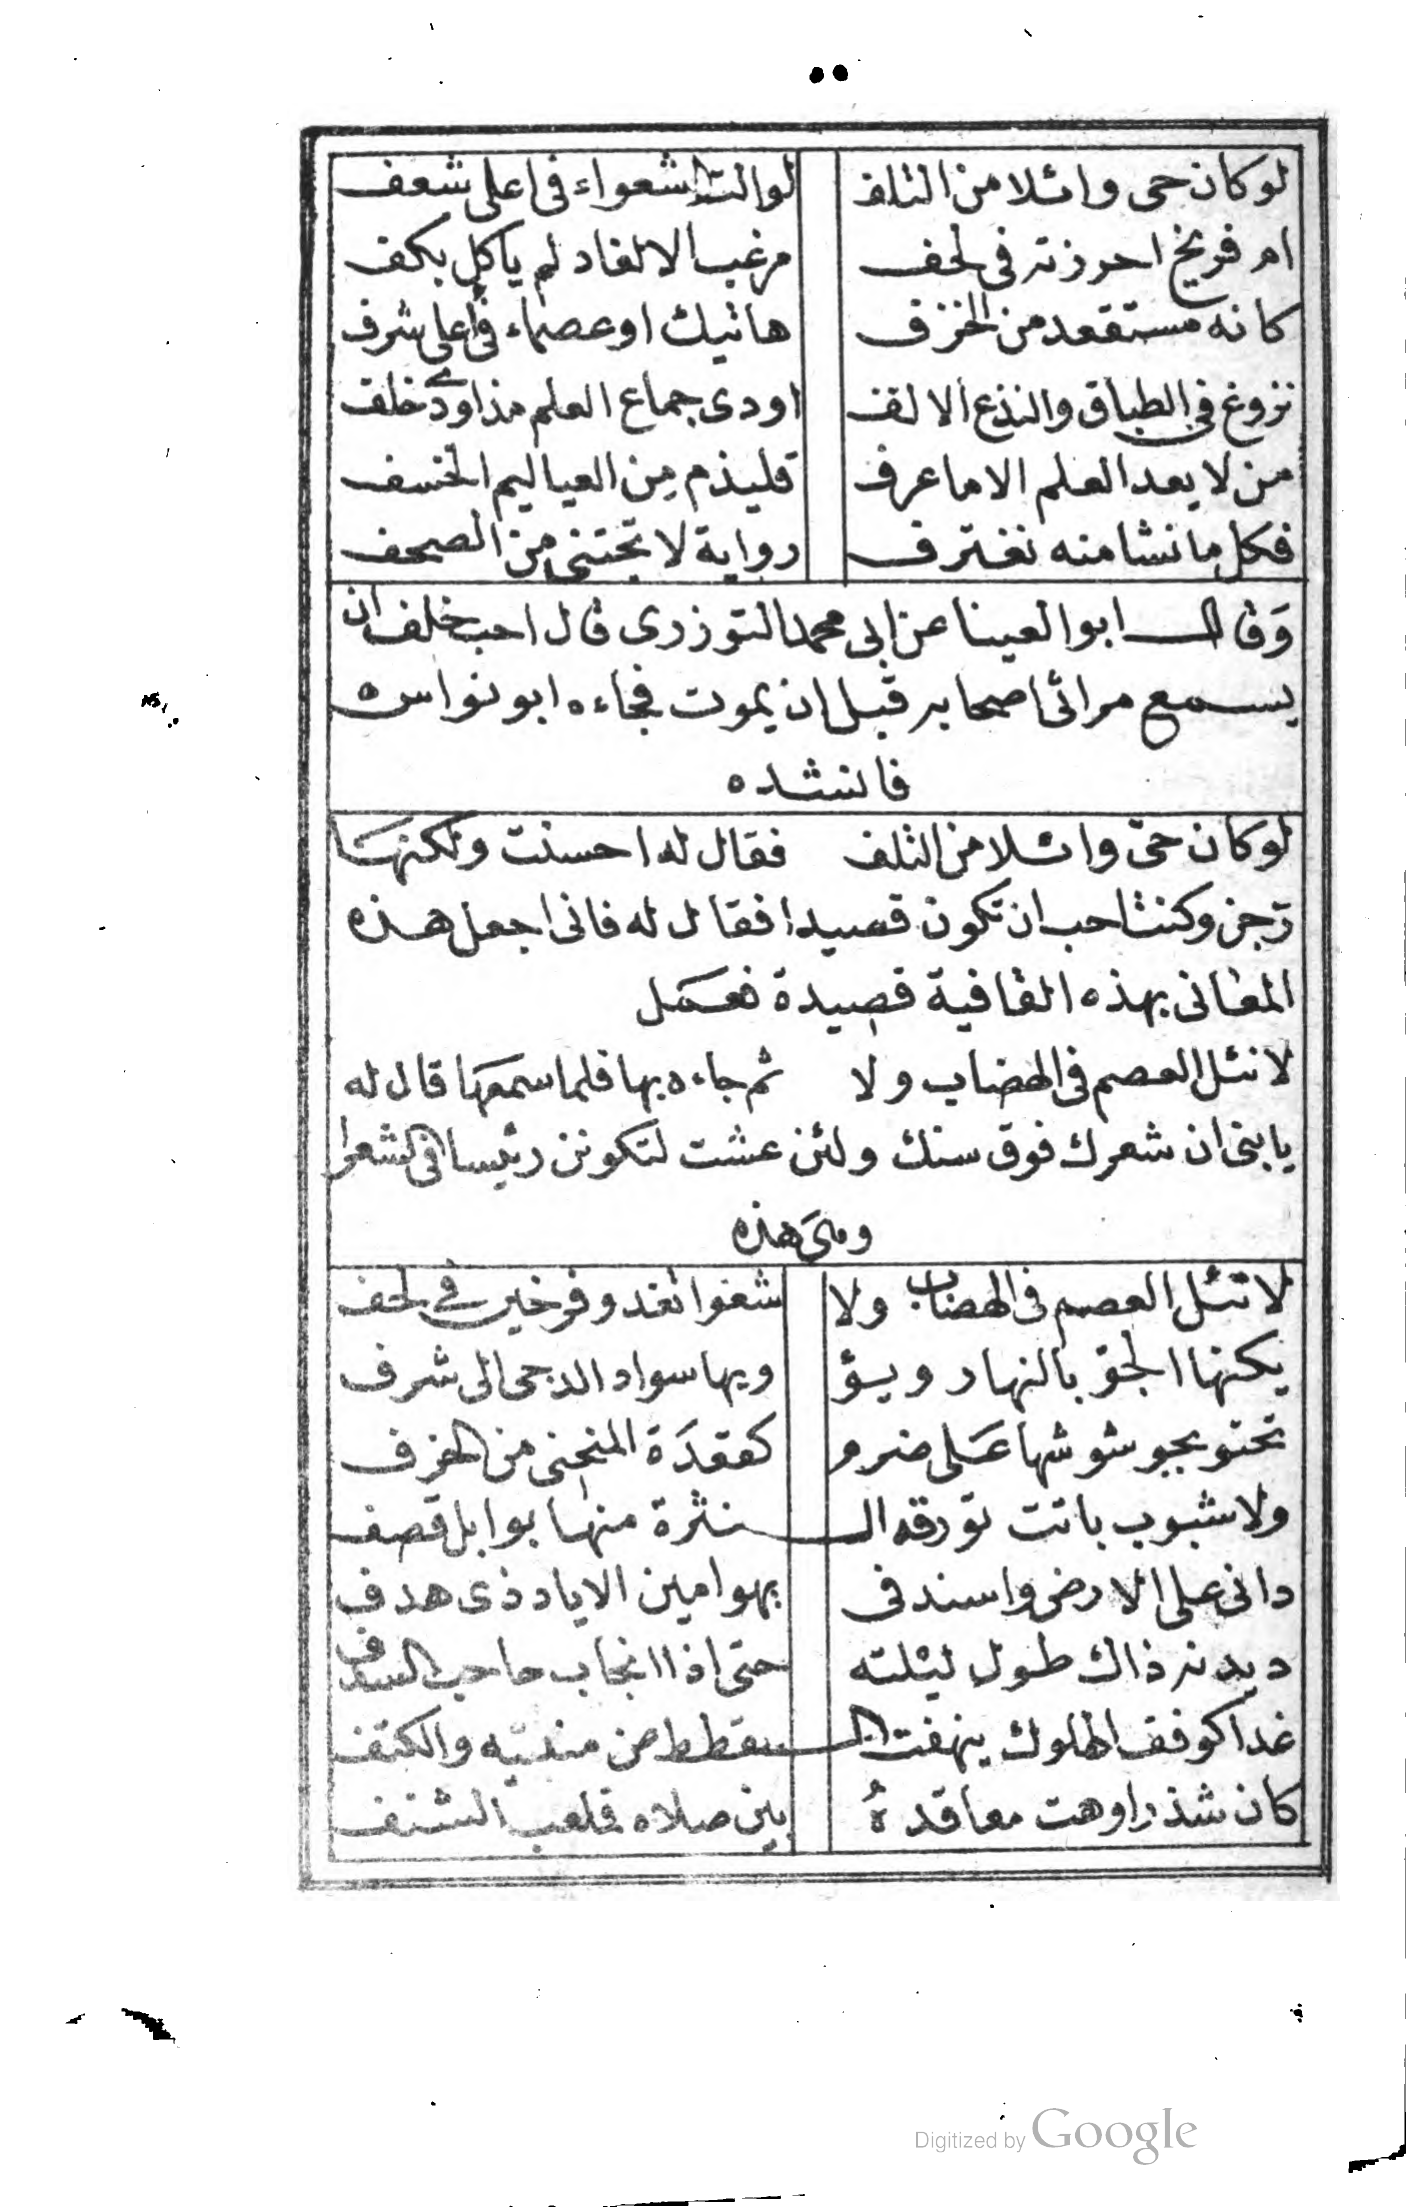 ٥٥
لو كان حى وائلا من التلف لوالت شعواء فى اعلى شعف
ام فريخ احرزته فى لحف مزغب الالغاد لم ياكل بكف
كانه مستقعد من الخزف هاتيك او عصماء فى اعلى شرف
تزوغ فى الطباق والنزع الالف اودى جماع العلم مذ اودى خلف
من لا يعد العلم الا ما عرف قليذم من العياليم الخسف
فكل ما نشا منه نغترف رواية لا تجتنى من الصحف
وقال ابو العينا عن ابى محمد التوزرى قال احب خلف ان
يسمع مراثى اصحابه قبل ان يموت فجاءه ابو نواس
فانشده
لو كان حى وائلا من التلف فقال له احسنت ولكنها
رجز وكنت احب ان تكون قصيدا فقال له فانى اجعل هذه
المعانى بهذه القافية قصيدة فعمل
لا تئل العصم فى الهضاب ولا ثم جاءه بها فلما سمعها قال له
يا بنى ان شعرك فوق سنك ولئن عشت لتكونن رئيسا فى الشعرا
وهى هذه
لا تئل العصم فى الهضاب ولا شغوا تغدو فرخين فى لحف
يكنها الجو بالنهار ويؤ ويها سواد الدجى الى شرف
تحنو بجوشوشها على ضرم كقعدة المنحنى من الخزف
ولا شبوب باتت تورقه الـ ـنثرة منها بوابل قصف
دانى على الارض واسند فى بهوامين الاياد ذى هدف
ديدنه ذاك طول ليلته حتى اذا انجاب حاجب السدف
غدا كوقف الهلوك ينهفت الـ ـقطقط من متنيه والكتف
كان شذرا وهت معاقده بين صلاه فلعب الشنف
Digitized by Google